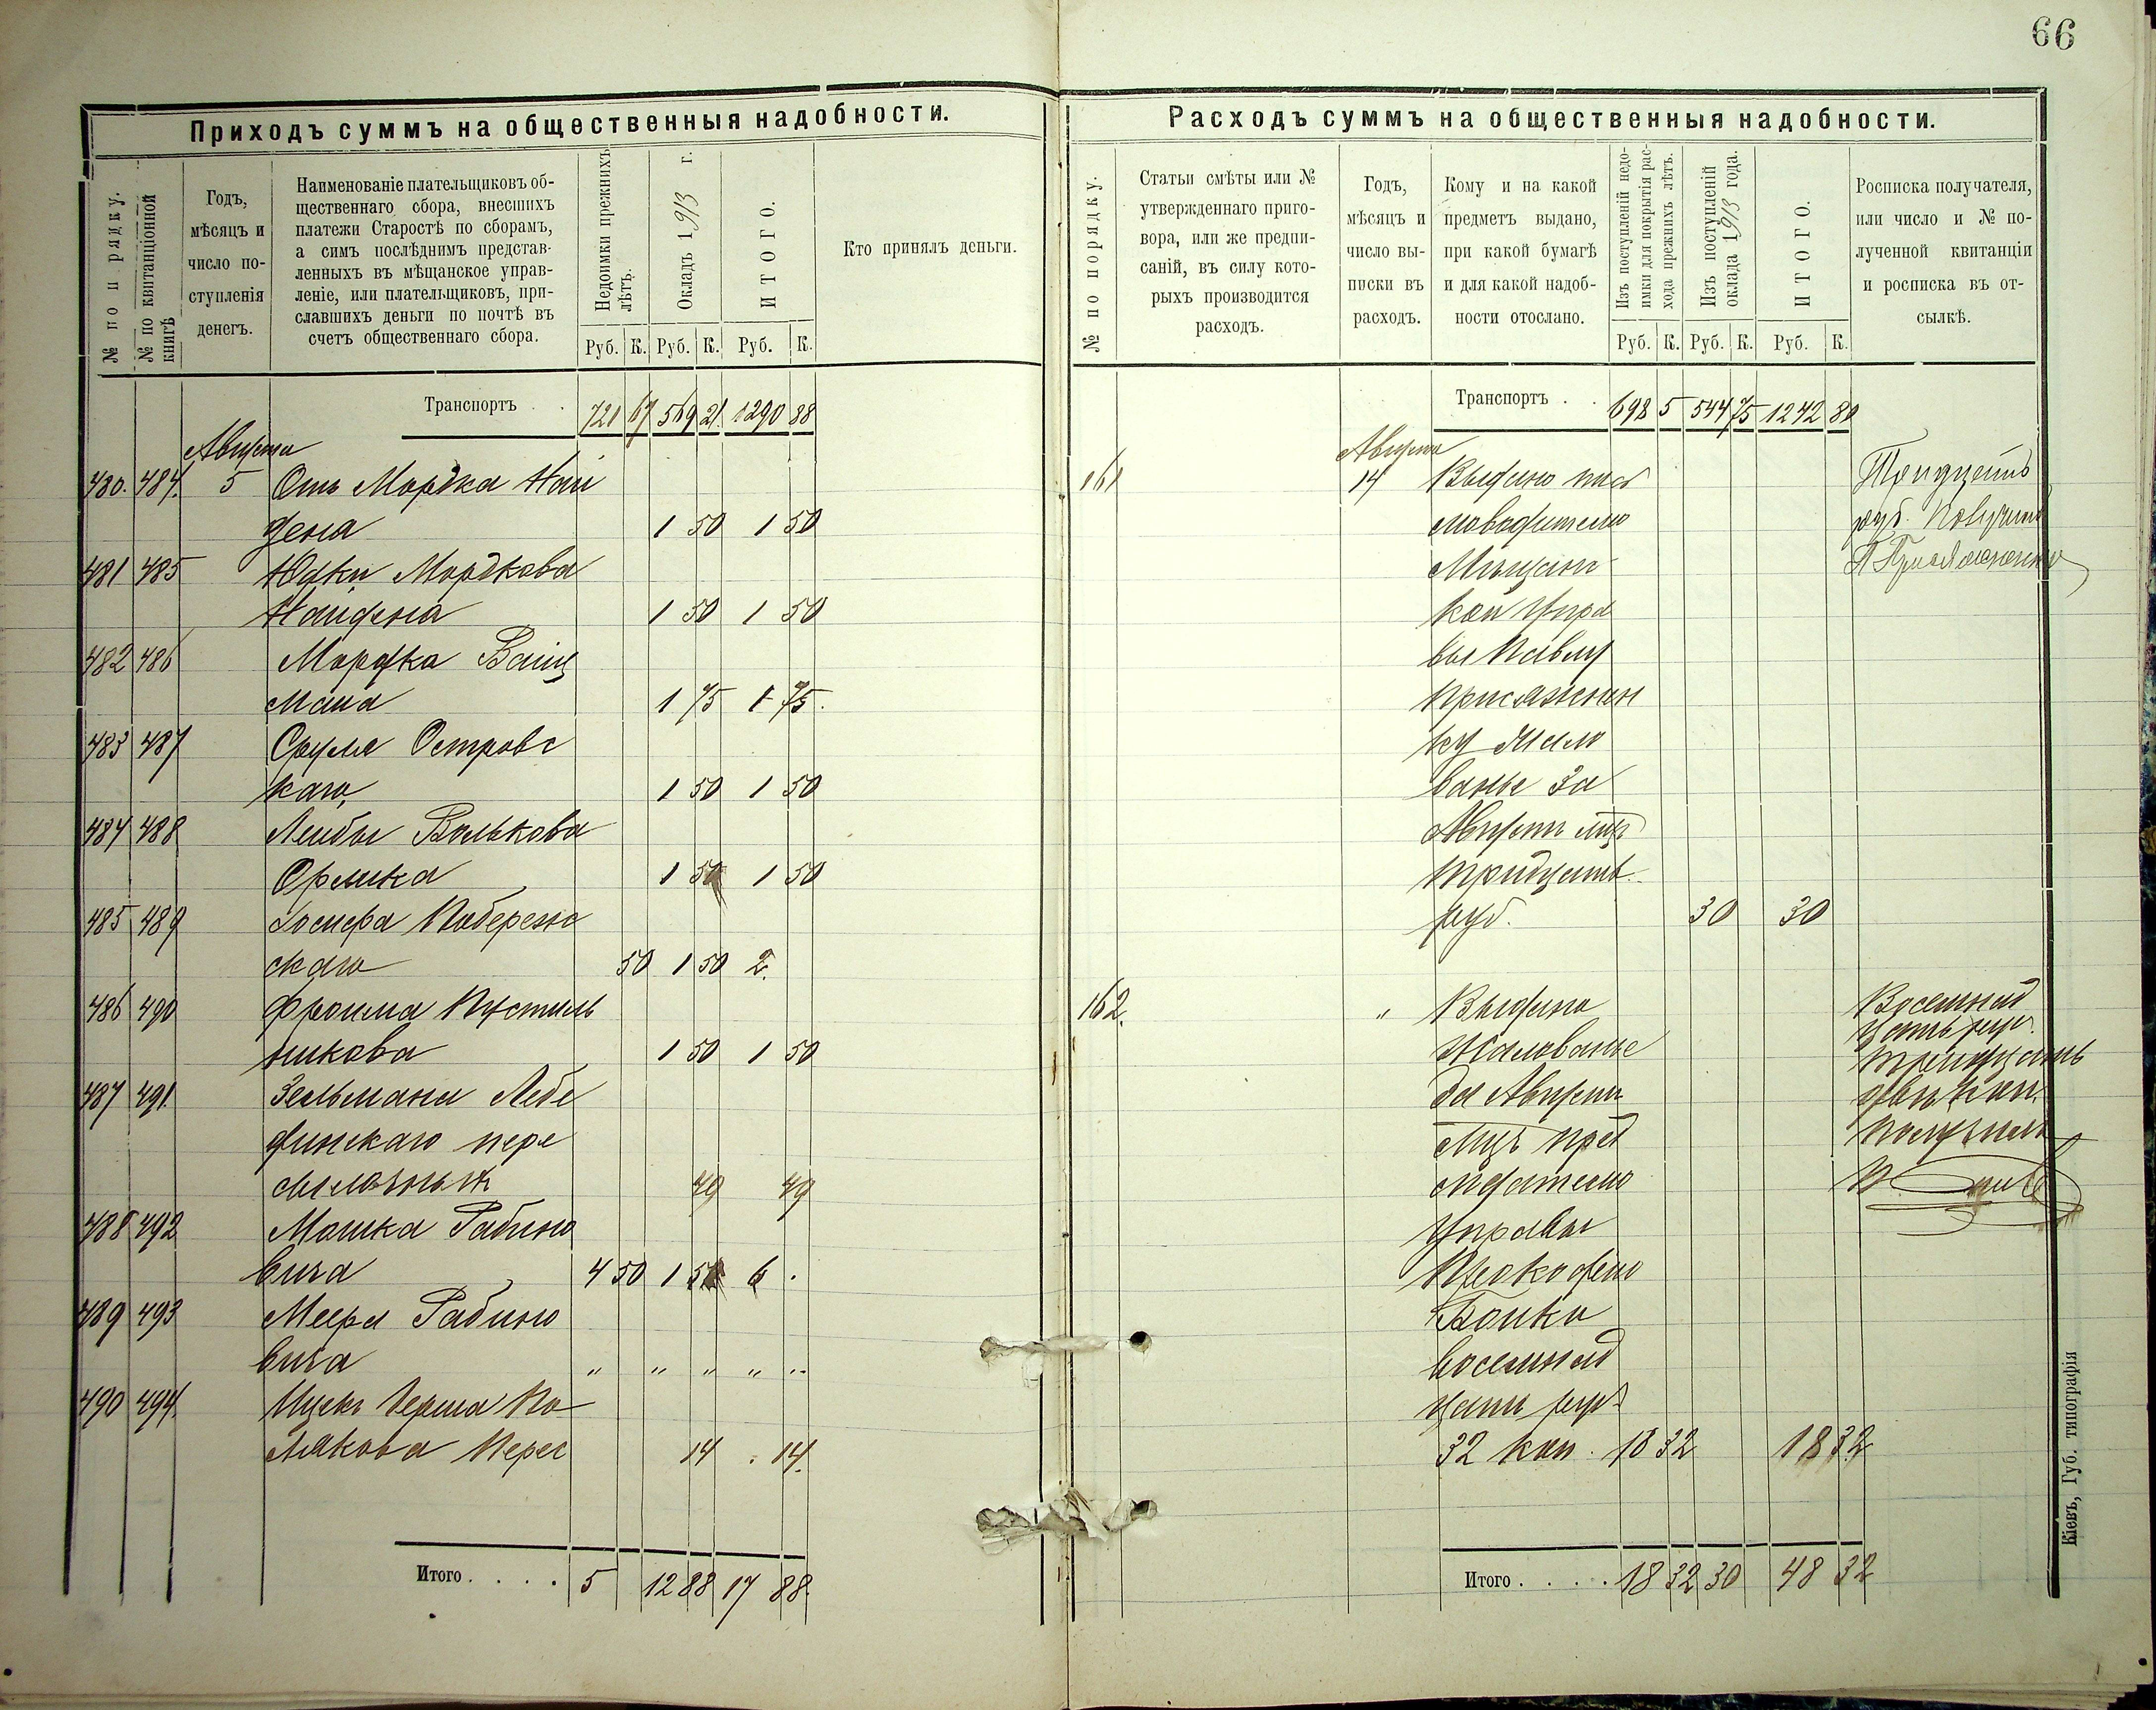 66
Приходъ суммъ на общественныя надобности.
№ по п рядку.
№ по квитанціонной книгѣ
Годъ, мѣсяцъ и число поступленія денегъ.
Наименованіе плательщиковъ об-
щественнаго сбора, внесшихъ
платежи Старостѣ по сборамъ,
а симъ послѣднимъ представ-
ленныхъ въ мѣщанское управ-
леніе, или плательщиковъ, при-
славшихъ деньги по почтѣ въ
счетъ общественнаго сбора.
Недоимки прежнихъ лѣтъ.
Окладъ 1913 г.
ИТОГО.
Кто принялъ деньги.
Руб. К. Руб. К. Руб. К.
Транспортъ . . 721 67 569 21 1290 88
Августа
480. 484. 5 Отъ Мордка Най
дена 1 50 1 50
481 485 Юдки Мордкова
Найдена 1 50 1 50
482 486 Мордка Вайц
мана 1 75 1 75.
483 487 Сруля Островс
каго, 1 50 1 50
484 488 Лейбы Волькова
Орлика 1 50 1 50
485 489 Іосифа Побережс
скаго 50 1 50 2.
486 490 Фроима Пустиль
никова 1 50 1 50
487 491. Зельмана Лебе
динскаго пере
сылочныхъ 49 49
488 492 Мошка Рабино
вича 4 50 1 50 6 .
489 493 Меера Рабино
вича " " " " "
490 494. Ицекъ Герша По
лякова Перес 14 . 14.
Итого . . . . 5 12 88 17 88.
Расходъ суммъ на общественныя надобности.
№ по порядку.
Статьи смѣты или №
утвержденнаго приго-
вора, или же предпи-
саній, въ силу кото-
рыхъ производится
расходъ.
Годъ,
мѣсяцъ и
число вы-
писки въ
расходъ.
Кому и на какой
предметъ выдано,
при какой бумагѣ
и для какой надоб-
ности отослано.
Изъ поступленій недо-
имки для покрытія рас-
хода прежнихъ лѣтъ.
Изъ поступленій
оклада 1913 года.
ИТОГО.
Росписка получателя,
или число и № по-
лученной квитанціи
и росписка въ от-
сылкѣ.
Руб. К. Руб. К. Руб. К.
Транспортъ . . 698 5 544 75 1242 80
Августа
161 14 Выдано пись
моводителю
Мѣщанс
кой Упра
вы Павлу
Присяжнен
ку жало
ванье за
Августъ мцъ
тридцать
руб. 30 30
Тридцать
руб. Получилъ
П Присяжненко
162. " Выдано
жалованье
за Августъ
мцъ пред
сѣдателю
Управы
Прокофію
Бойки
восемнад
цать руб
32 коп. 18 32 18 32
Восемнад
цать руб.
тридцать
двѣ коп.
получилъ
П
Итого . . . . 18 32 30 48 32
Кіевъ, Губ. типографія